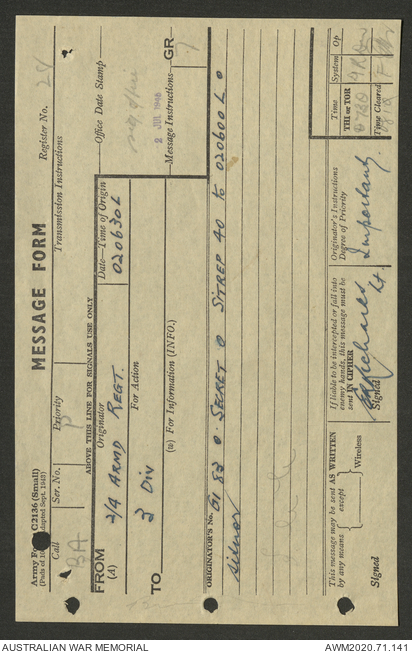 Army Form C2136 (Small)
(Pads of 100) (Adapted Sept. 1943)
MESSAGE FORM
Register No. 24
Call
Ser. No.
Priority
Transmission Instructions
BA
P
ABOVE THIS LINE FOR SIGNALS USE ONLY
FROM
(A)
Originator
2/4 ARMD REGT.
Date—Time of Origin
020630L
Office Date Stamp
2 JUL 1945
For Action
TO
3 DIV
(W) For Information (INFO.)
Message Instructions
GR
ORIGINATOR'S No.
G1 82 O. SECRET O SITREP 40 to 020600 L O
sitnor
This message may be sent AS WRITTEN
by any means except
Wireless
Signed
If liable to be intercepted or fall into
enemy hands, this message must be
sent IN CIPHER
Signed
Originator's Instructions
Degree of Priority
Important
Time
System
Op
THI or TOR
Time Cleared
AUSTRALIAN WAR MEMORIAL
AWM2020.71.141